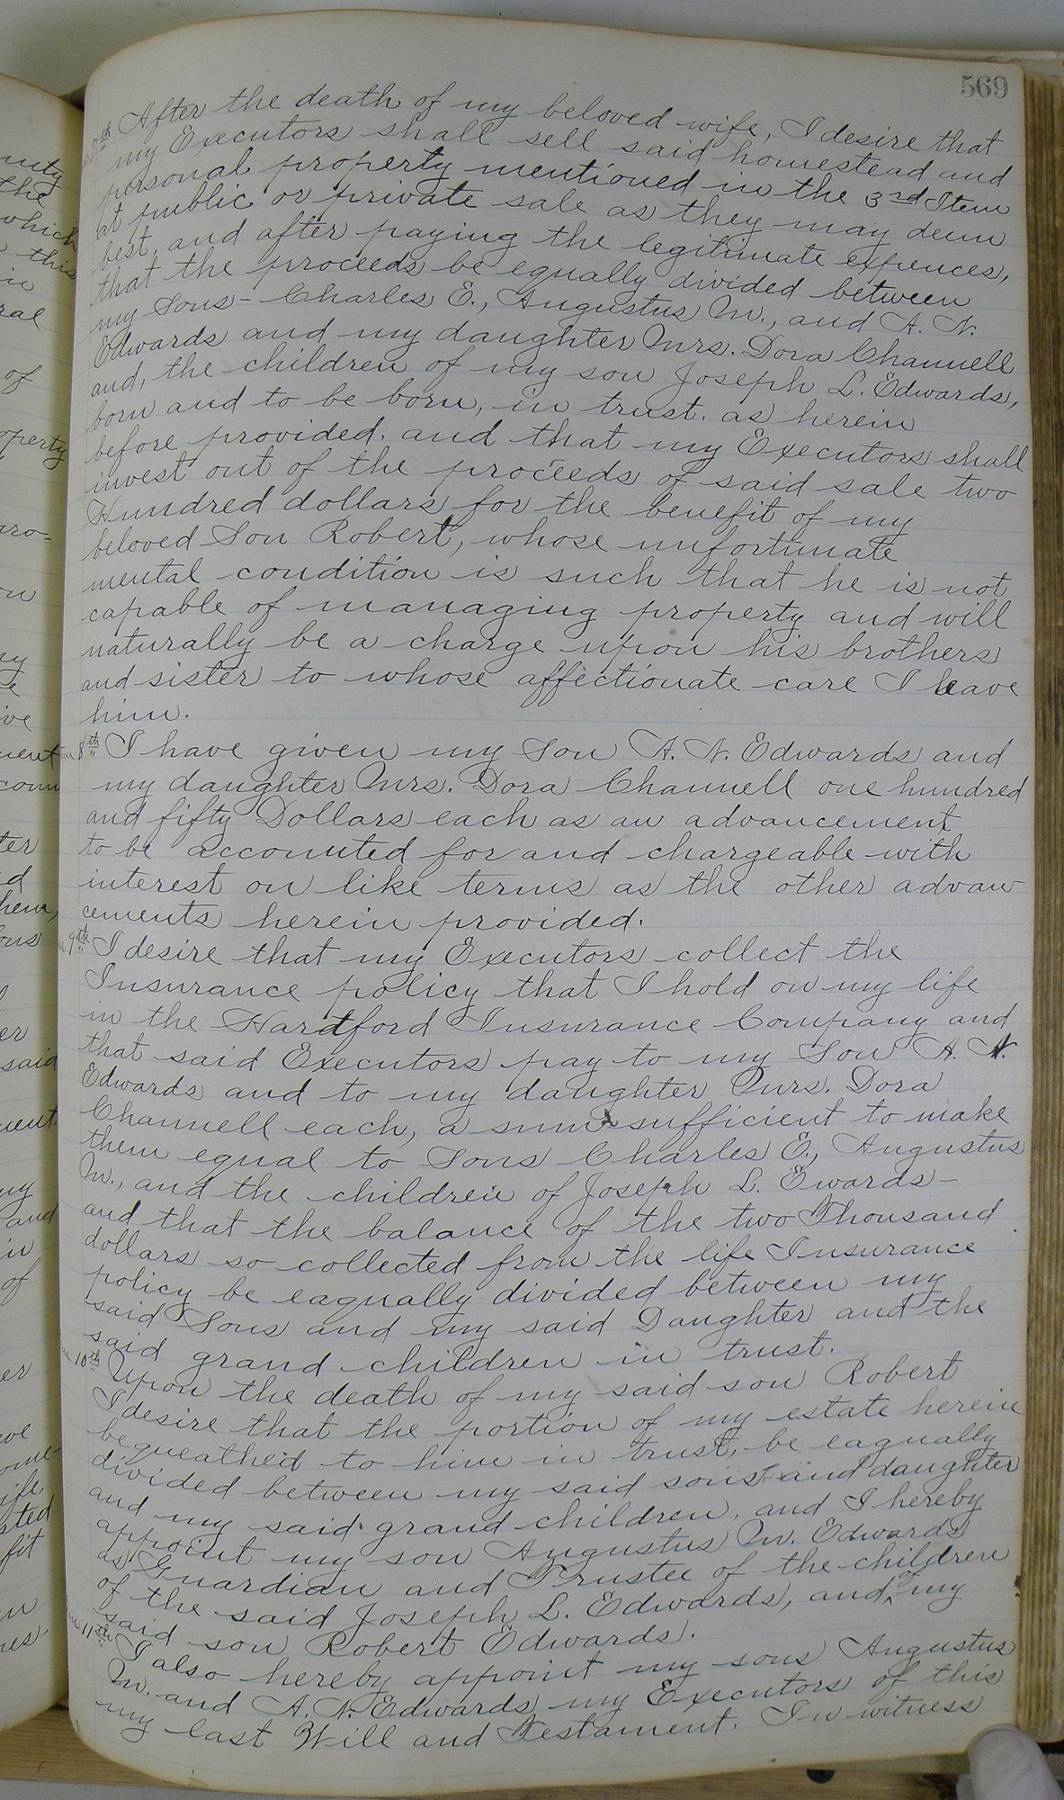 569
7th After the death of my beloved wife, I desire that
my Executors shall sell said homestead and
personal property mentioned in the 3rd Item
at public or private sale as they may deem
best, and after paying the legitimate expences,
that the proceeds be equally divided between
my Sons - Charles E., Augustus M., and A. N.
Edwards and my daughter Mrs. Dora Channell
and, the children of my son Joseph L. Edwards,
born and to be born, in trust. as herein
before provided. and that my Executors shall
invest out of the proceeds of said sale two
Hundred dollars for the benefit of my
beloved Son Robert, whose unfortunate
mental condition is such that he is not
capable of managing property and will
naturally be a charge upon his brothers
and sister to whose affectionate care I leave
him.
8th I have given my Son A. N. Edwards and
my daughter Mrs. Dora Channell one hundred
and fifty Dollars each as an advancement
to be accounted for and chargeable with
interest on like terms as the other advan
cements herein provided.
9th I desire that my Executors collect the
Insurance policy that I hold on my life
in the Hardtford Insurance Company and
that said Executors pay to my Son A. N.
Edwards and to my daughter Mrs. Dora
Channell each, a sum sufficient to make
them equal to Sons Charles E., Augustus
M., and the children of Joseph L. Ewards -
and that the balance of the two Thousand
dollars so collected from the life Insurance
policy be eaqually divided between my
said Sons and my said Daughter and the
said grand children in trust.
10th Upon the death of my said son Robert
I desire that the portion of my estate herein
bequeathed to him in trust, be eaqually
divided between my said sons and daughter
and my said grand children, and I hereby
appoint my son Augustus M. Edwards
as Guardian and Trustee of the children
of the said Joseph L. Edwards, and of my
said son Robert Edwards.
11th I also hereby appoint my sons Augustus
M. and A. N. Edwards my Executors of this
my last Will and Testament. In witness